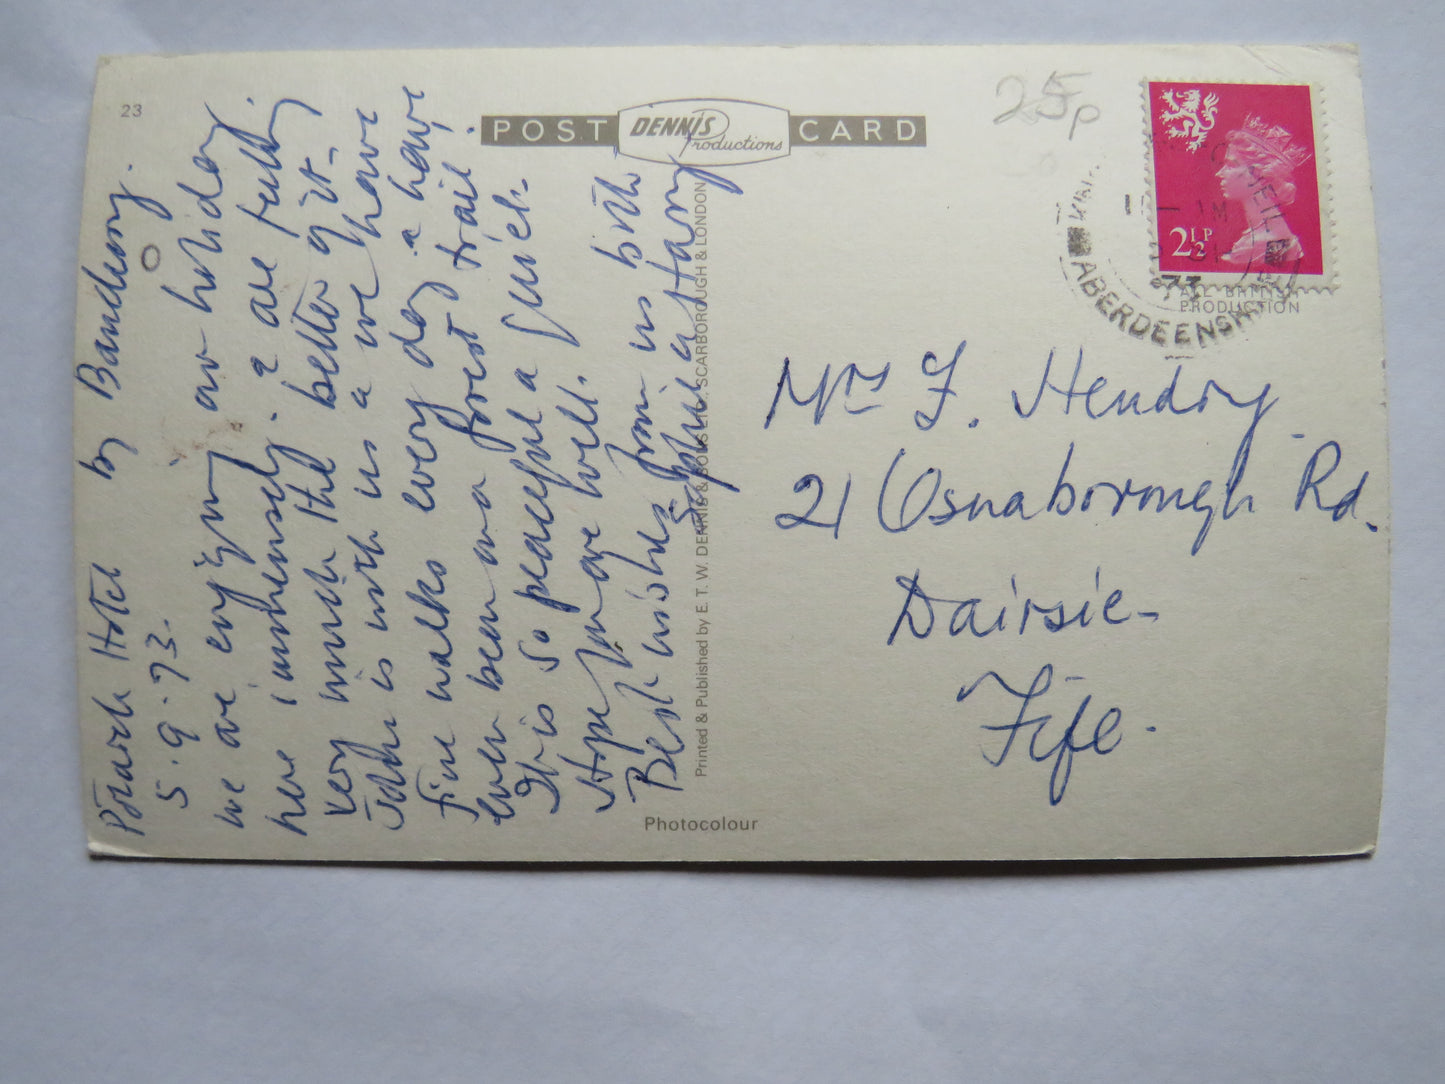 23
POST CARD
DENNIS
Productions
25p
2½P
ABERDEENSHIRE
73
ALL BRITISH
PRODUCTION
Potarch Hotel by Banchory.
5.9.73.
We are enjoying our holiday
here immensely. & are feeling
very much the better of it.
John is with us & we have
fine walks every day & have
even been on a forest trail.
It is so peaceful & quiet.
Hope you are well.
Best wishes from us both
Sophie & Harry
Printed & Published by E. T. W. DENNIS & SONS LTD. SCARBOROUGH & LONDON
Photocolour
Mrs F. Hendry.
21 Osnaborough Rd.
Dairsie-
Fife.